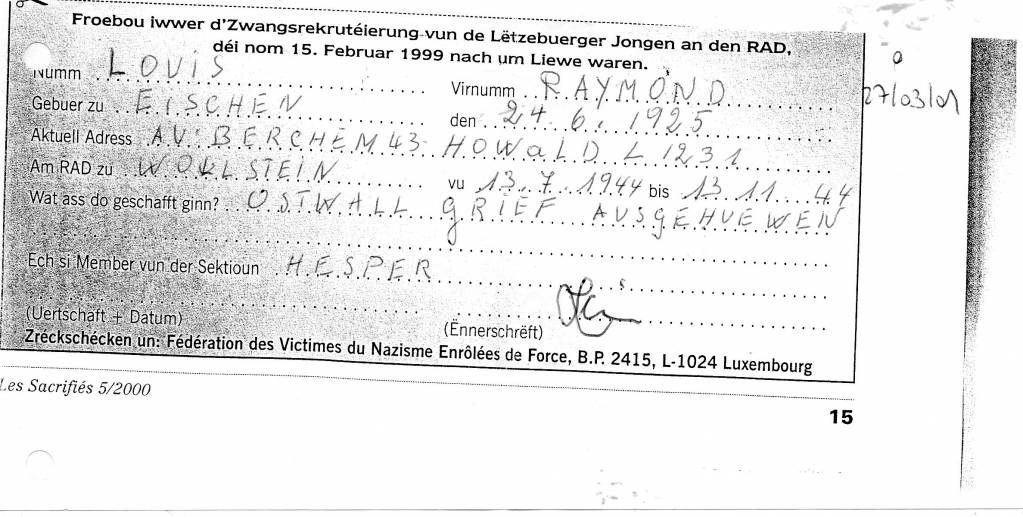 Froebou iwwer d'Zwangsrekrutéierung vun de Lëtzebuerger Jongen an den RAD,
déi nom 15. Februar 1999 nach um Liewe waren.
Numm LOUIS Virnumm RAYMOND
27/03/01
Gebuer zu EISCHEN den 24.6.1925
Aktuell Adress AV. BERCHEM 43 HOWALD L 1231
Am RAD zu WOLLSTEIN vu 13.7.1944 bis 13.11 44
Wat ass do geschafft ginn? OSTWALL GRIEF AUSGEHUEWEN
Ech si Member vun der Sektioun HESPER
(Uertschaft + Datum) (Ënnerschrëft)
Zréckschécken un: Fédération des Victimes du Nazisme Enrôlées de Force, B.P. 2415, L-1024 Luxembourg
Les Sacrifiés 5/2000
15